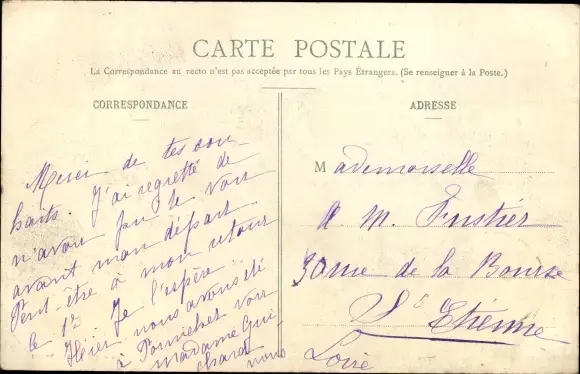 CARTE POSTALE
La Correspondance au recto n'est pas acceptée par tous les Pays Étrangers. (Se renseigner à la Poste.)
CORRESPONDANCE
Merci de tes sou-
haits. J'ai regretté de
n'avoir pu le voir
avant mon départ
Peut-être à mon retour
le 12 Je l'espère.
Hier nous avons été
à Pornichet voir
Madame Gui
chard
nous
ADRESSE
Mademoiselle
A M. Fustier
30 rue de la Bourse
St Etienne
Loire